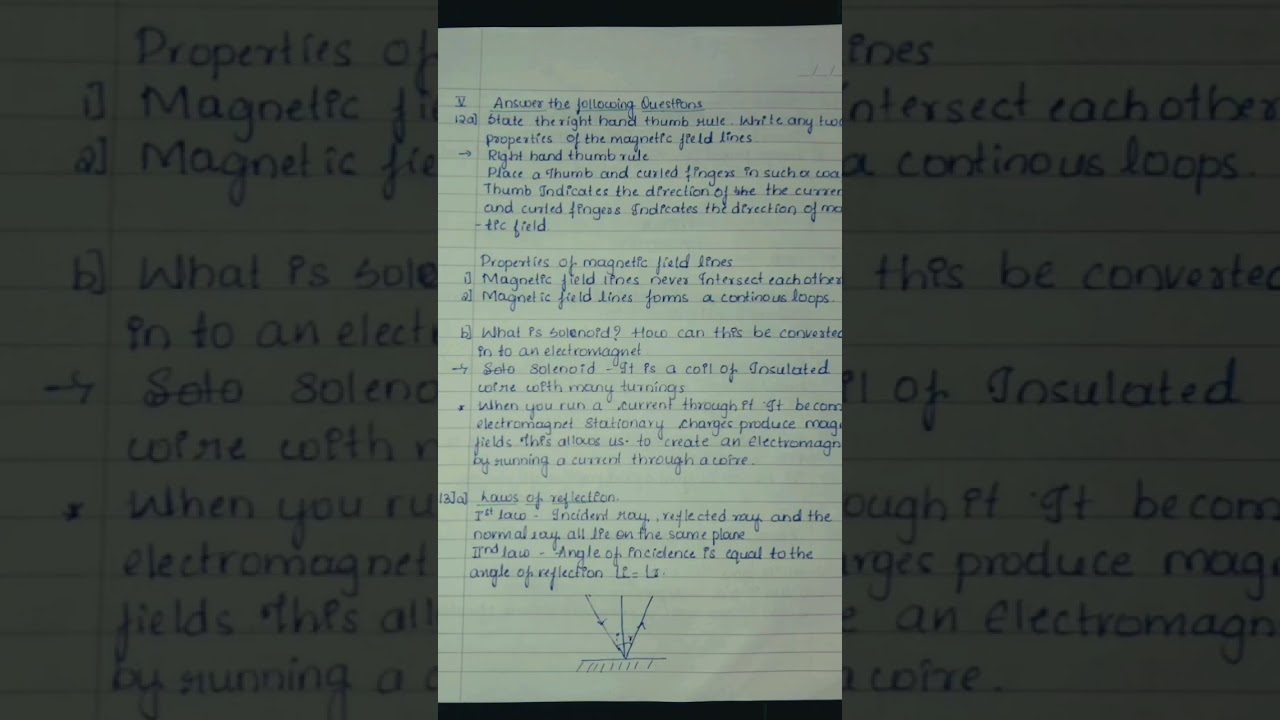 V Answer the following Questions
12a] State the right hand thumb rule. Write any two
properties of the magnetic field lines.
→ Right hand thumb rule
Place a Thumb and curled fingers in such a wa
Thumb Indicates the direction of the the curren
and curled fingers Indicates the direction of ma
-tic field.
Properties of magnetic field lines
1] Magnetic field lines never Intersect each other
2] Magnetic field lines forms a continous loops.
b] What is solenoid? How can this be converted
in to an electromagnet
→ Solo Solenoid - It is a coil of Insulated
wire with many turnings
* When you run a current through it It becom
electromagnet Stationary charges produce mag
fields This allows us to create an Electromagn
by running a current through a wire.
13]a] Laws of reflection.
Ist law - Incident ray, reflected ray and the
normal ray all lie on the same plane
IInd law - Angle of incidence is equal to the
angle of reflection ∠i = ∠r.
i r